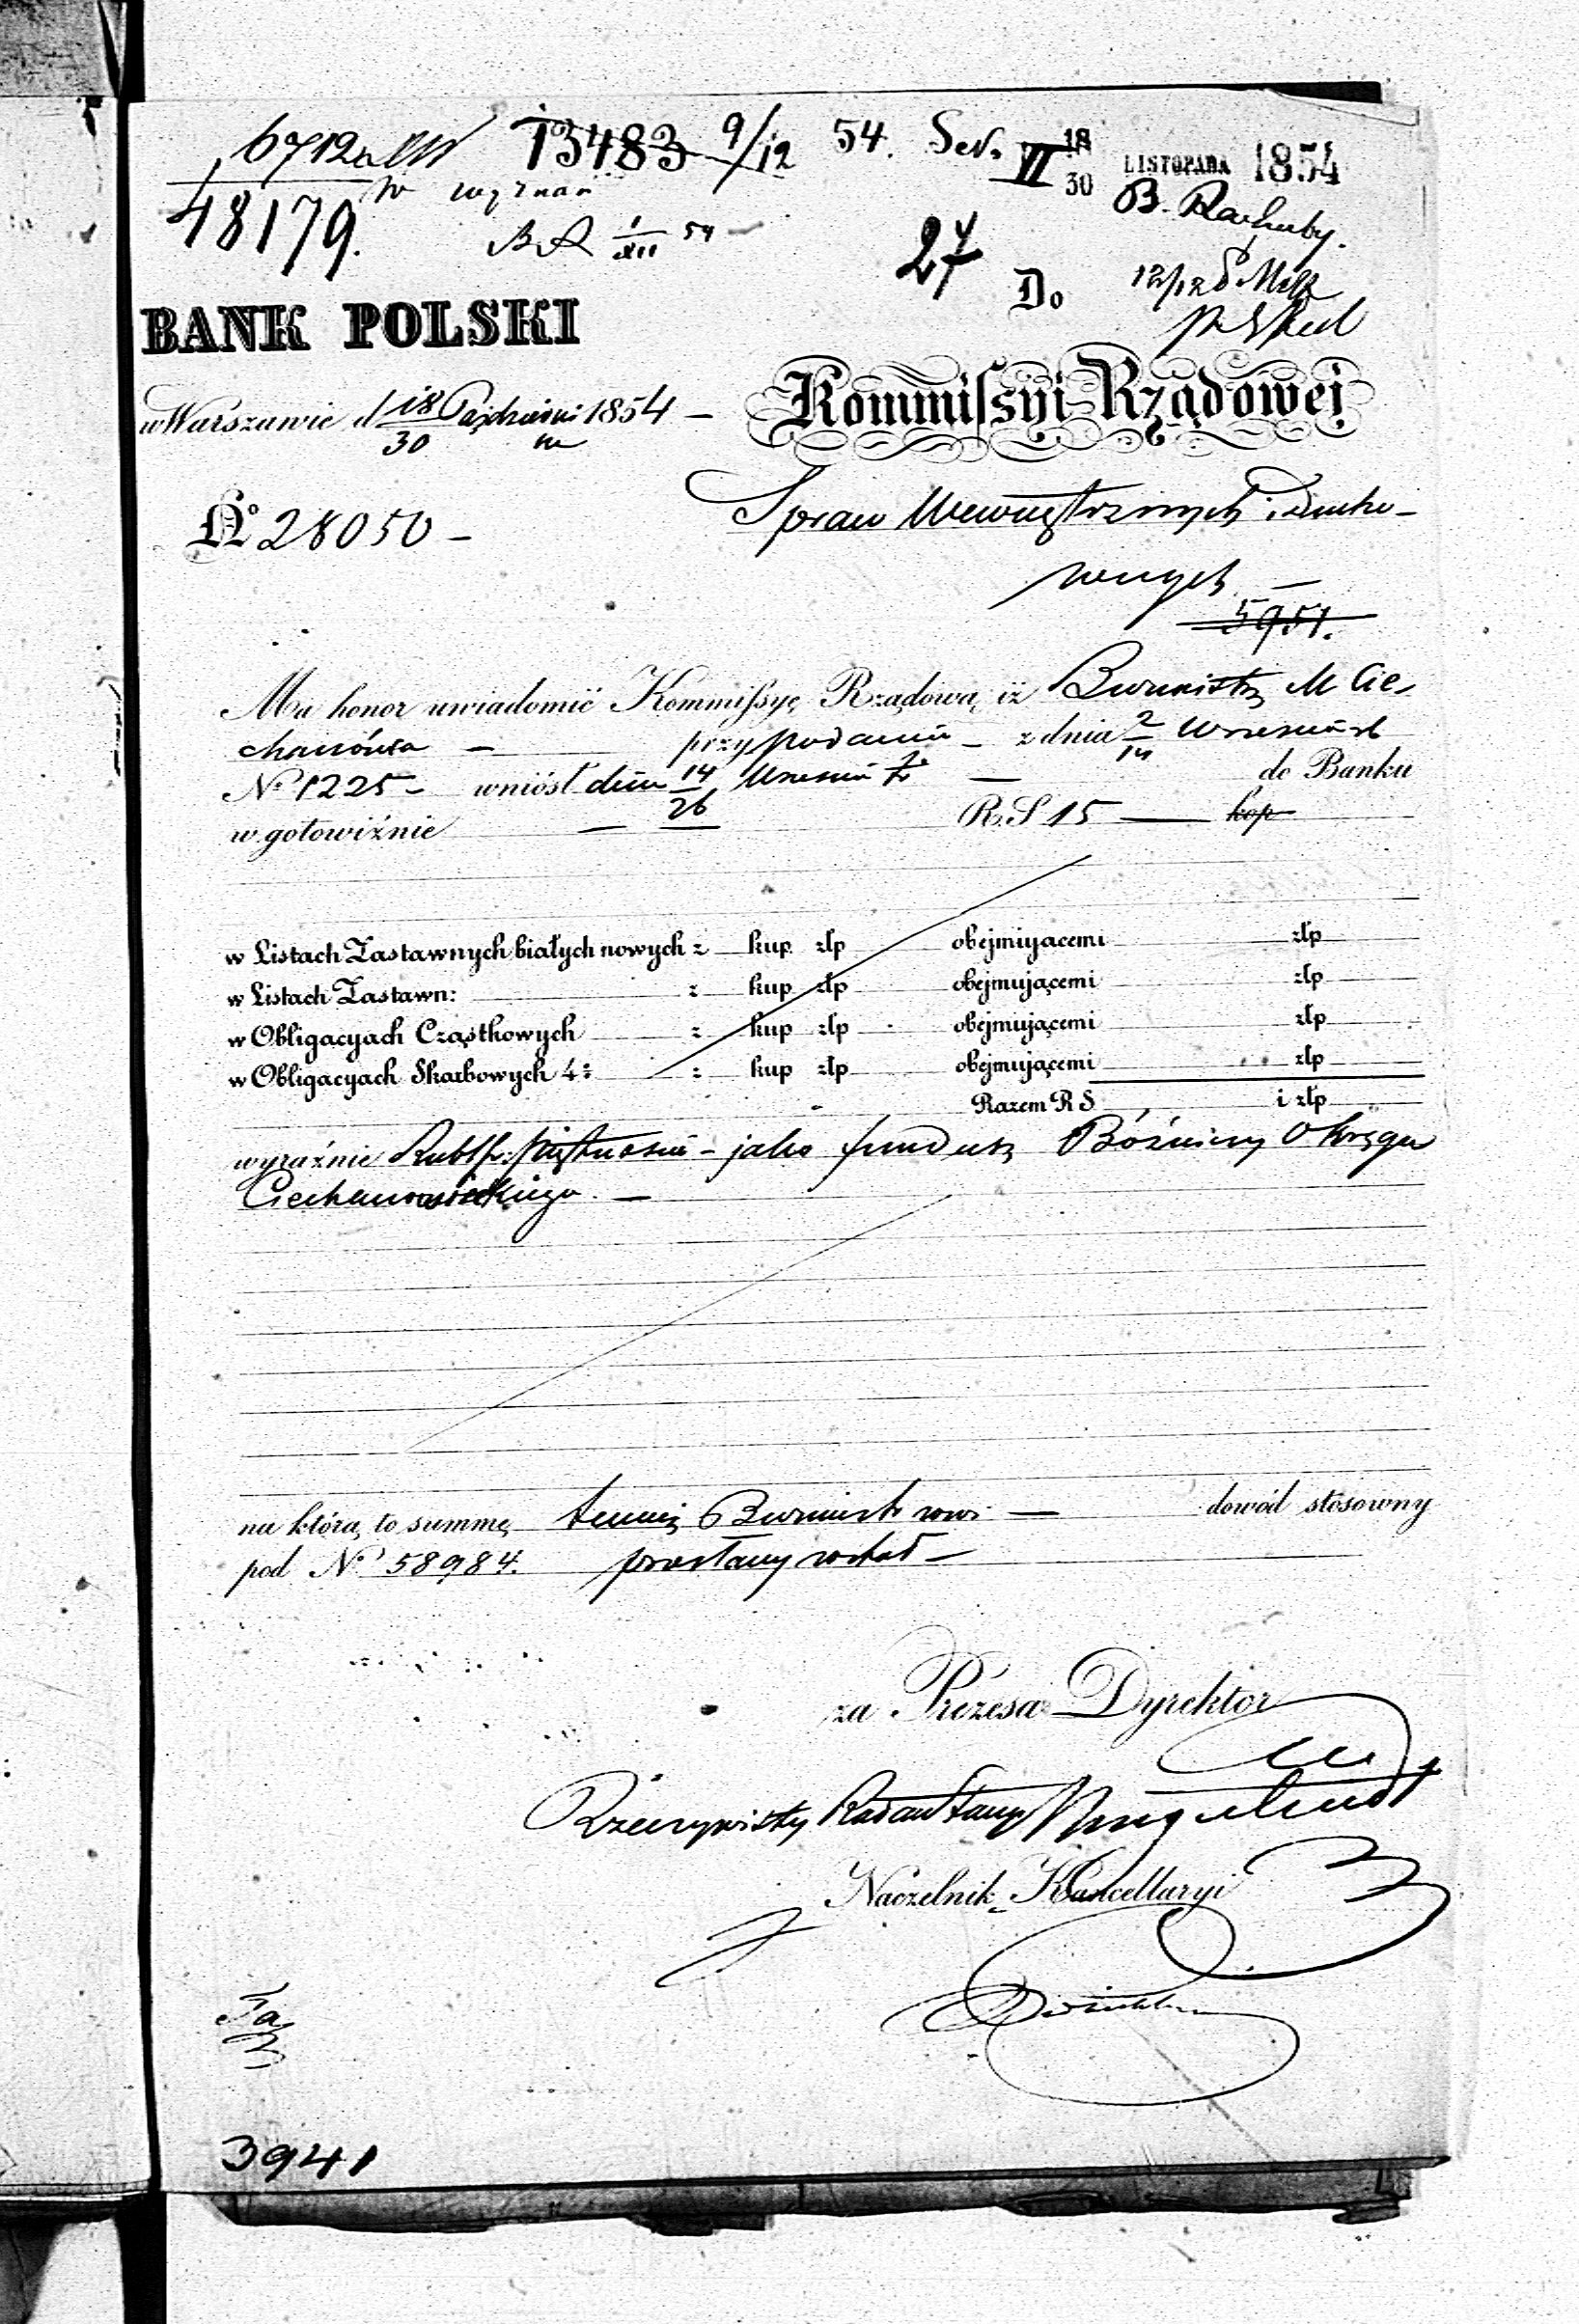 6712 13483 9/12 54. Sek. VI 18/30 LISTOPADA 1854
48179. w wyznań B. Rachuby.
BA 1/XII 54
27
Do 12/12
BANK POLSKI
w Warszawie d 18/30 Październi 1854 —
ka
Kommissyi Rządowej
No 28050 —
Spraw Wewnętrznych i Ducho-
wnych —
5951.
Ma honor uwiadomić Kommissyę Rządową iż Burmistrz M Cie-
chanówka — przy podaniu — z dnia 2/14 Września rb
No 1225 — wniósł dnia 14/26 Września do Banku
w gotowiźnie — R.S 15 — kop
w Listach Zastawnych białych nowych z kup złp obejmującemi złp
w Listach Zastawn: z kup złp obejmującemi złp
w Obligacyach Cząstkowych z kup złp obejmującemi złp
w Obligacyach Skarbowych 4% z kup złp obejmującemi złp
Razem R S i złp
wyraźnie Rubli sr: piętnaście — jako fundusz Bóźniczy Okręgu
Ciechanowieckiego. —
na którą to summę temuż Burmistrzowi — dowód stosowny
pod No 58984. przesłany został —
za Prezesa Dyrektor
Rzeczywisty Radca Stanu
Naczelnik Kancellaryi
3941